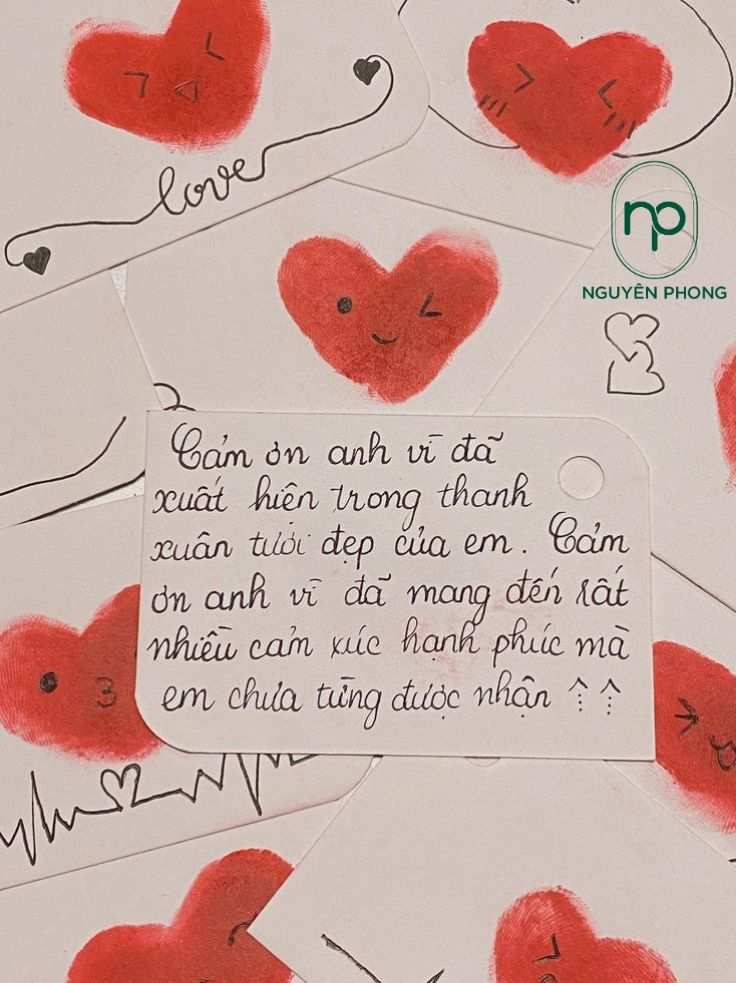 love
np
NGUYÊN PHONG
Cảm ơn anh vì đã
xuất hiện trong thanh
xuân tươi đẹp của em. Cảm
ơn anh vì đã mang đến rất
nhiều cảm xúc hạnh phúc mà
em chưa từng được nhận ^ ^